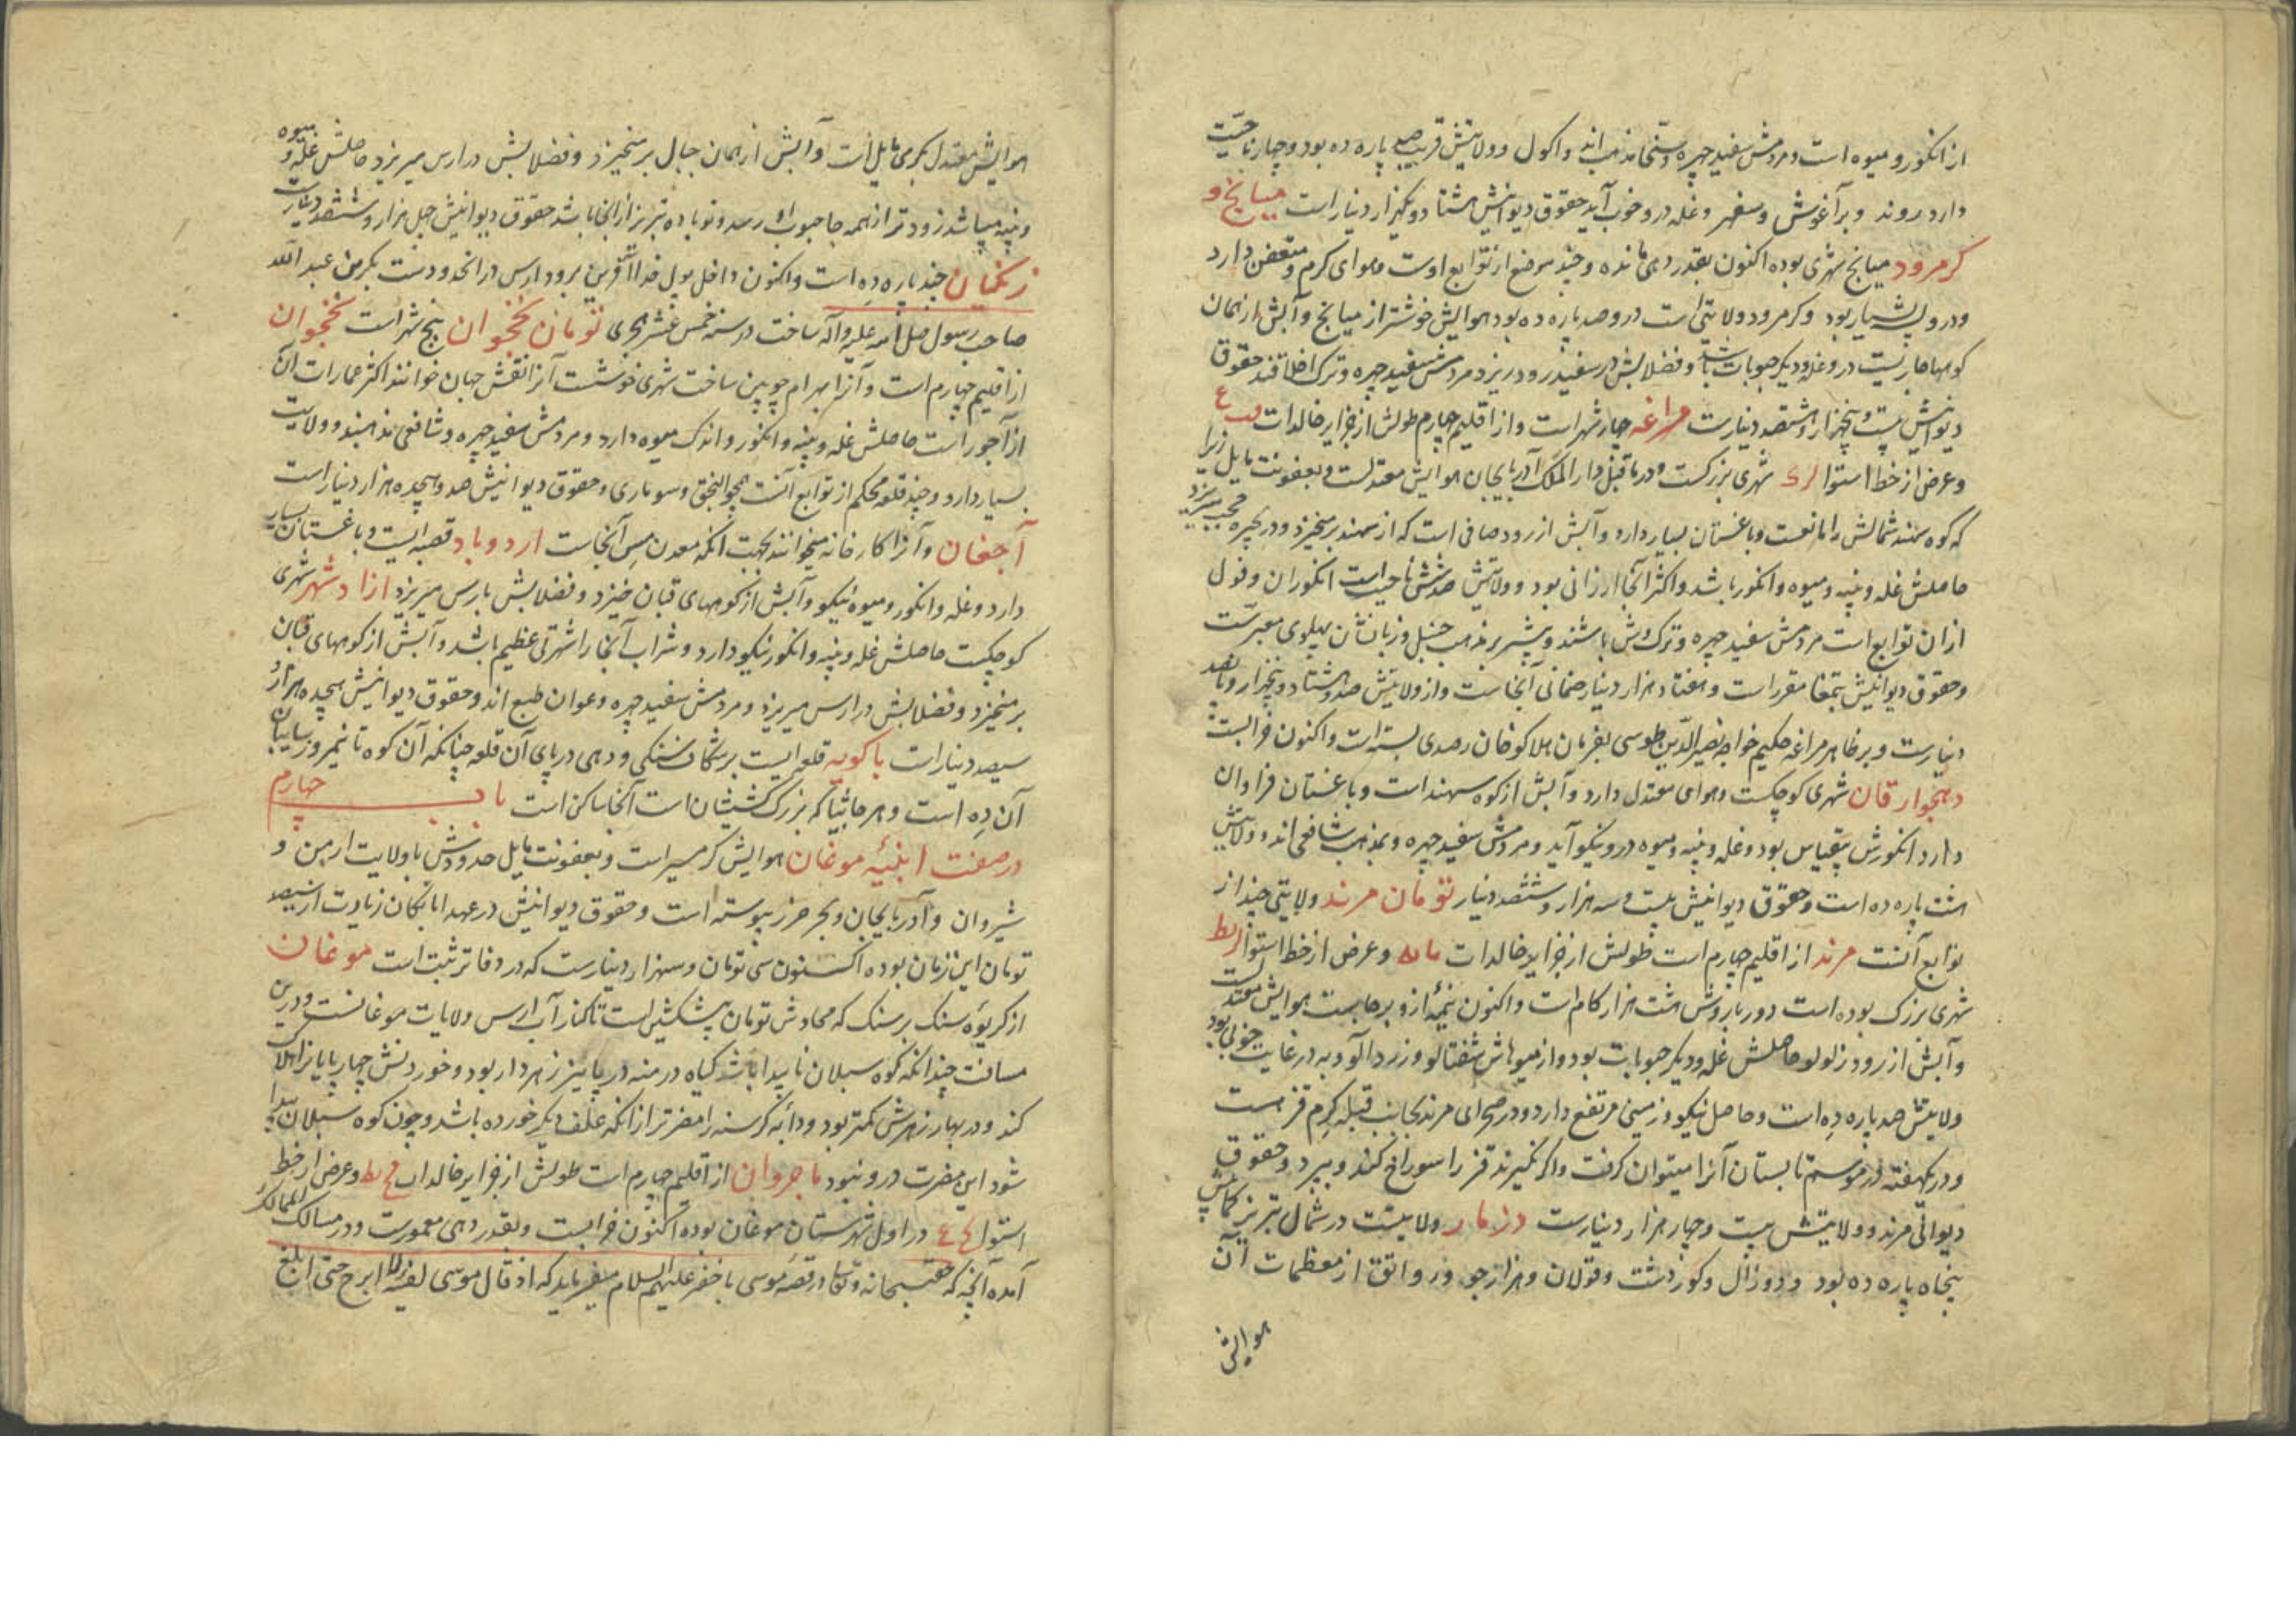 از انگور و میوه است و مردمش سفید چهره و سنی مذهب اند و اکول و ولایتش قریب صد پاره ده بود و چهار ناحیت
دارد و غله درو خوب آید حقوق دیوانیش هشتاد و یکهزار دینار است میانج و
کرمرود میانج شهری بوده اکنون بقدر دهی مانده و چند موضع از توابع اوست و هوای گرم و متعفن دارد
و درو پشه بسیار بود و کرمرود ولایتی است درو صد پاره ده بود هوایش خوشتر از میانج و آبش از همان
کوهها جاریست درو غله و دیگر حبوبات باشد و فضلابش در سفیدرود ریزد مردمش سفید چهره و ترک اخلاقند حقوق
دیوانیش بیست و پنجهزار و هشتصد دینارست مراغه چهار شهر است و از اقلیم چهارم طولش از جزایر خالدات
و عرض از خط استوا شهری بزرکست و در ماقبل دار الملک آذربایجان هوایش معتدلست و بعفونت مایل زیرا
که کوه سهند شمالش را مانعست و باغستان بسیار دارد و آبش از رود صافی است که از سهند برمیخیزد و در بحیره میریزد
حاصلش غله و پنبه و میوه و انگور باشد و اکثر آنجا ارزانی بود و ولایتش شش ناحیت است
از ان توابع است مردمش سفید چهره و ترک وش باشند و بیشتر بر مذهب حنبل و زبانشان پهلوی معبرست
و حقوق دیوانیش بتمغا مقرر است و هفتاد هزار دینار ضمانی آنجاست و از ولایتش صد و هشتاد و پنجهزار و پانصد
دینارست و بر ظاهر مراغه حکیم خواجه نصیر الدین طوسی بفرمان هلاکو خان رصدی بسته است و اکنون خرابست
دهخوارقان شهری کوچکست و هوای معتدل دارد و آبش از کوه سهند است و باغستان فراوان
دارد انگورش بیقیاس بود و غله و پنبه و میوه درو نیکو آید و مردمش سفید چهره و بمذهب شافعی اند و ولایتش
هشت پاره ده است و حقوق دیوانیش بیست و سه هزار و ششصد دینار تومان مرند ولایتی چند از
توابع آنست مرند از اقلیم چهارم است طولش از جزایر خالدات و عرض از خط استوا
شهری بزرک بوده است دور باروش هشت هزار کام است و اکنون نیمه ازو برجاست هوایش معتدلست
و آبش از رود زلولو حاصلش غله و دیگر حبوبات بود و از میوهاش شفتالو و زردآلو و به در غایت خوبی بود
ولایتش صد پاره ده است و حاصل نیکو و زمینی مرتفع دارد و در صحرای مرند بجانب قبله کرم قزمست
و در یکهفته در موسم تابستان آنرا میتوان گرفت و اگر نگیرند قز را سوراخ کند و بپرد و حقوق
دیوانی مرند و ولایتش بیست و چهار هزار دینارست دزمار ولایتیست در شمال تبریز کمابیش
پنجاه پاره ده بود و دوزال و کوردشت و قولان و هرازجو ورواتق از معظمات آن
هوایش
هوایش معتدل بگرمی مایل است و آبش از همان جبال برمیخیزد و فضلابش در ارس میریزد حاصلش غله و میوه
و پنبه میباشد زودتر از همه جا حبوب رسد و نوباده تبریز از انجا باشد حقوق دیوانیش چهل هزار و ششصد دینارست
زنگیان چند پاره ده است و اکنون داخل پول خداآفرین برود ارس در انحدودست بکر بن عبد الله
صاحب رسول صلی الله علیه و آله ساخت در سنه خمس عشر هجری تومان نخجوان پنج شهر است نخجوان
از اقلیم چهارم است و آنرا بهرام چوبین ساخت شهری خوشست آنرا نقش جهان خوانند اکثر عمارات آن
از آجور است حاصلش غله و پنبه و انگور و اندک میوه دارد و مردمش سفید چهره و شافعی مذهبند و ولایت
بسیار دارد و چند قلعه محکم از توابع آنست همچو النجق و سوماری و حقوق دیوانیش صد و سیجده هزار دینار است
آجغان و آنرا کارخانه میخوانند بجهت آنکه معدن مس آنجاست اردوباد قصبه ایست و باغستان بسیار
دارد و غله و انگور و میوه نیکو و آبش از کوههای قبان خیزد و فضلابش بارس میریزد ازاد شهر شهری
کوچکست حاصلش غله و پنبه و انگور نیکو دارد و شراب آنجا را شهرتی عظیم باشد و آبش از کوههای قبان
برمیخیزد و فضلابش در ارس میریزد و مردمش سفید چهره و عوان طبع اند و حقوق دیوانیش هیجده هزار و
سیصد دینار است باکویه قلعه ایست بر شکاف سنگی و دهی در پای آن قلعه چنانکه آن کوه تا نیمروز سایبان
آن ده است و هر جاثلیا که بزرک کشیشان است آنجا ساکن است باب چهارم
در صفت ابنیه موغان هوایش گرمسیر است و بعفونت مایل حدودش با ولایت ارمن و
شیروان و آذربایجان و بحر خزر پیوسته است و حقوق دیوانیش در عهد اتابکان زیادت از سیصد
تومان این زمان بوده اکنون سی تومان و سه هزار دینارست که در دفاتر ثبت است موغان
از کریوه سنک بر سنک که محاذی تومان پیشکین است تا کنار آب ارس ولایات موغانست و درین
مسافت چندانکه کوه سبلان ناپیدا باشد گیاه درمنه در پاییز زهردار بود و خوردنش چهارپایانرا هلاک
کند و در بهار زهرش کمتر بود و دابه گرسنه را مضرتر از انکه علف دیگر خورده باشد و چون کوه سبلان پیدا
شود این مضرت درو نبود باجروان از اقلیم چهارم است طولش از جزایر خالدات و عرض از خط
استوا در اول شهرستان موغان بوده اکنون خرابست و بقدر دهی معمورست و در مسالک الممالک
آمده آنچه که حق سبحانه و تعالی در قصه موسی با خضر علیهم السلام میفرماید که اذ قال موسی لفتیه لا ابرح حتی ابلغ